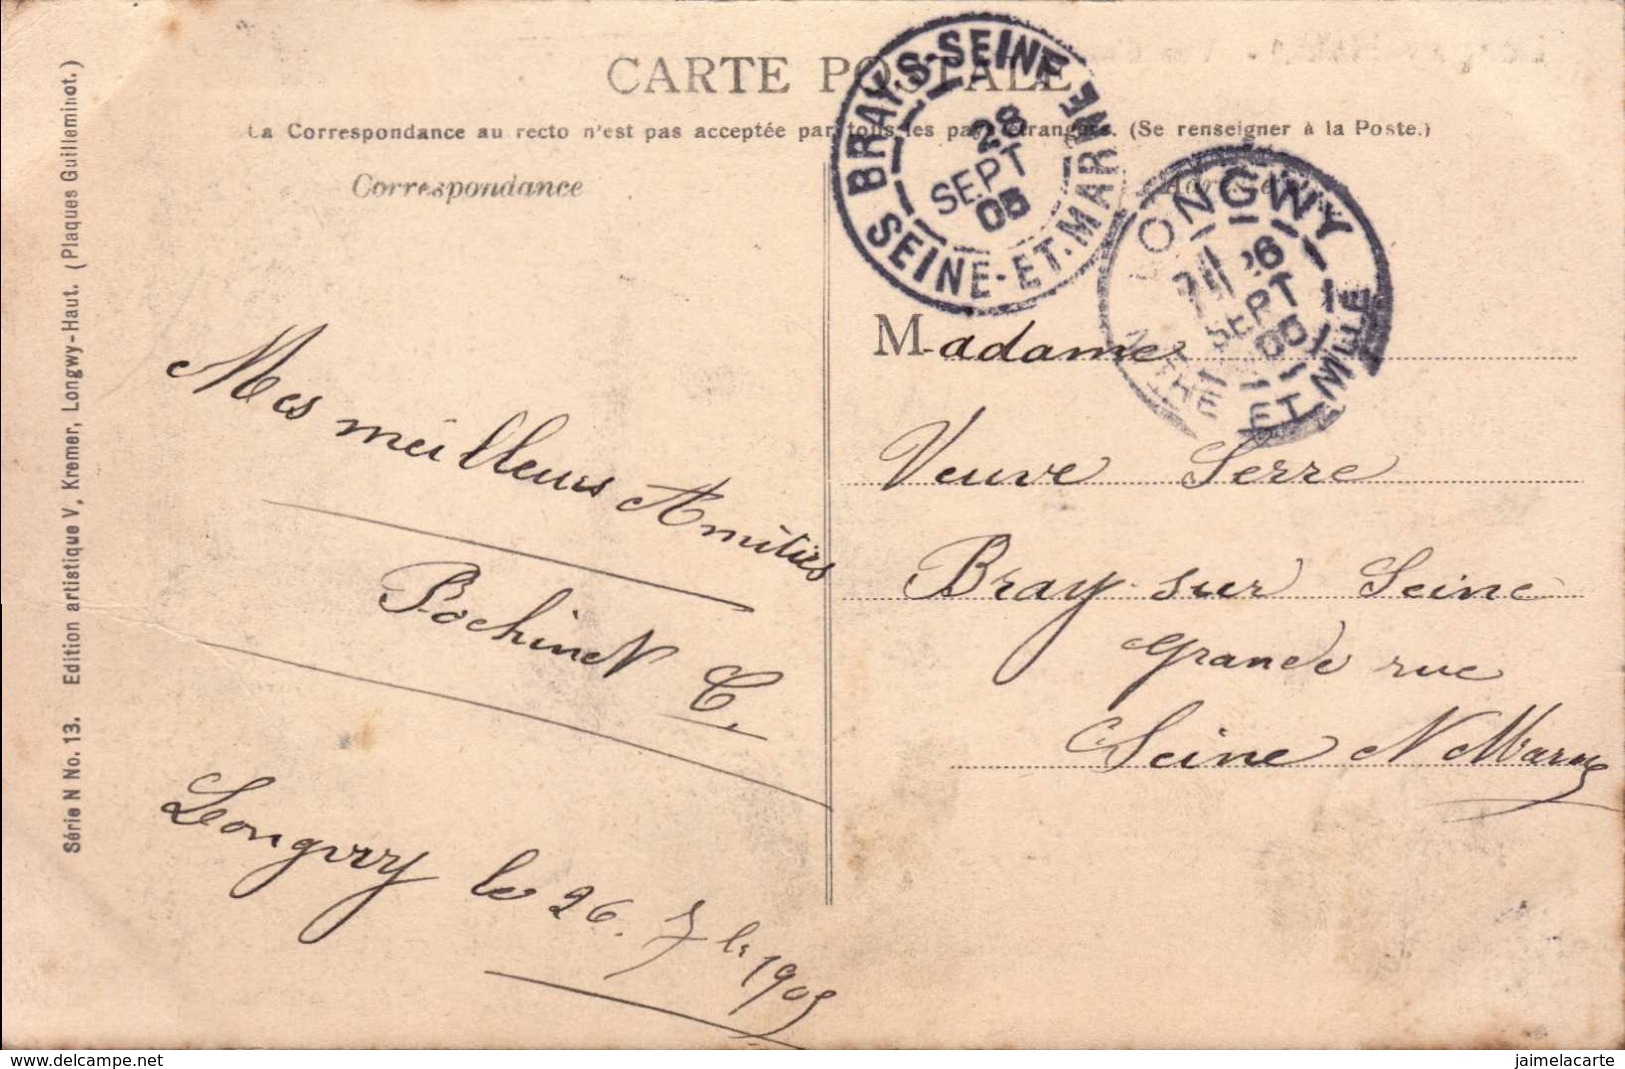 CARTE POSTALE
La Correspondance au recto n'est pas acceptée par tous les pays étrangers. (Se renseigner à la Poste.)
Correspondance
Adresse
Série N No. 13. Edition artistique V, Kremer, Longwy-Haut. (Plaques Guilleminot.)
BRAY-S-SEINE
28
SEPT
05
SEINE-ET-MARNE
LONGWY
26
SEPT
05
MTHE ET MLLE
Mes meilleurs Amitiés
Pochinet C.
Longwy le 26. 7bre 1905
Madame
Veuve Serre
Bray sur Seine
grande rue
Seine et Marne
www.delcampe.net
jaimelacarte